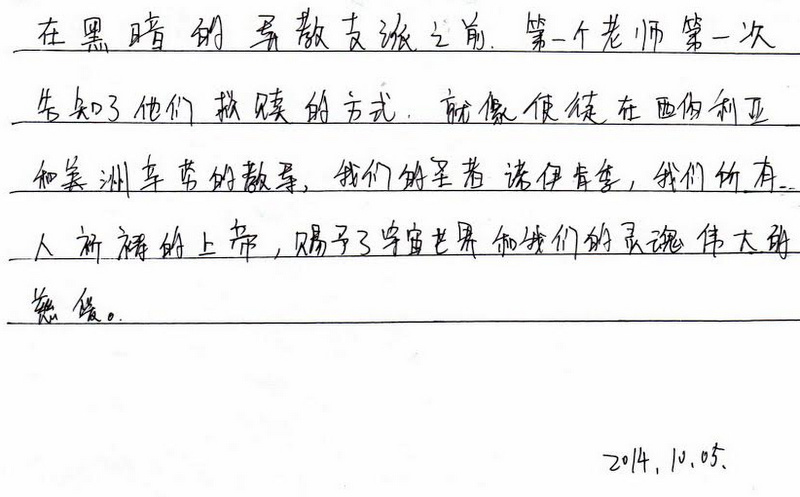 在黑暗的异教支派之前. 第一个老师第一次
告知了他们救赎的方式. 就像使徒在西伯利亚
和美洲辛劳的教导, 我们的圣者诺伊肯季, 我们所有
人祈祷的上帝, 赐予了宇宙世界和我们的灵魂伟大的
慈
2014.10.05.